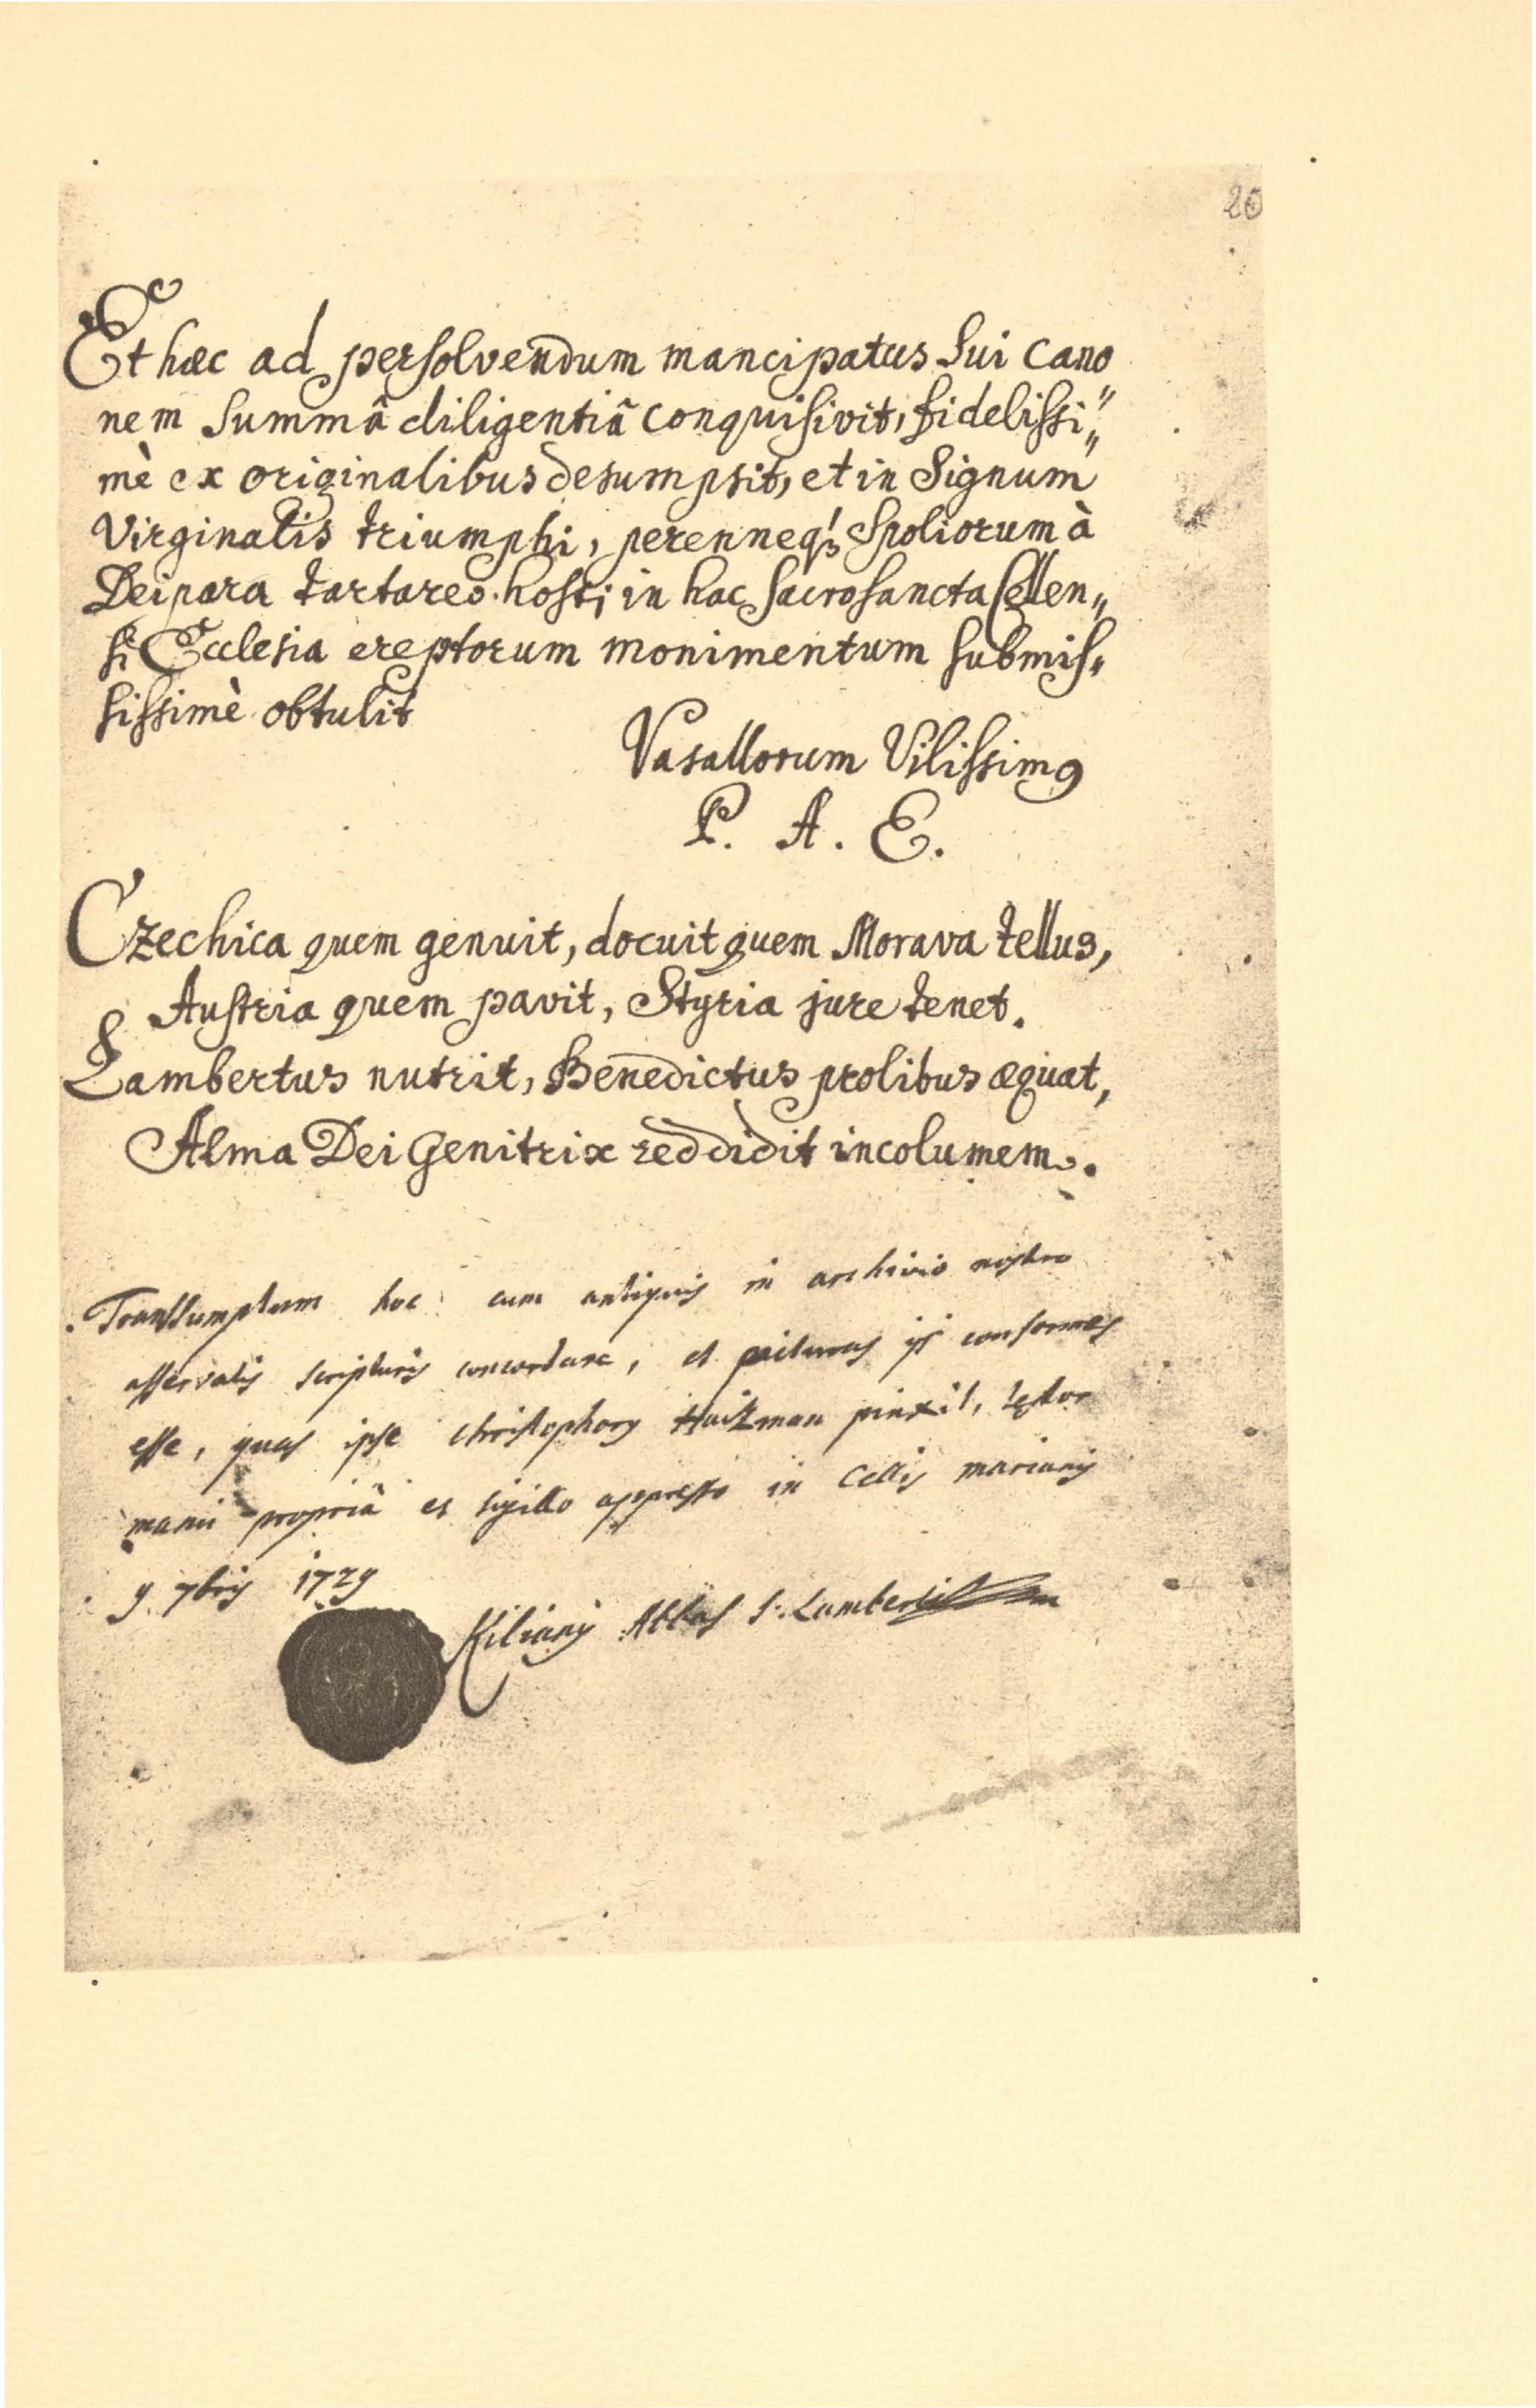 20
Et hæc ad persolvendum mancipatus sui cano
nem summâ diligentiâ conquisivit, fidelissi„
mè ex originalibus desumpsit, et in Signum
Virginalis triumphi, perenneq; Spoliorum à
Deipara tartareo hosti in hac Sacrosancta Cellen„
si Ecclesia ereptorum monimentum submis„
sissimè obtulit
Vasallorum Vilissimꝰ
P. A. E.
Czechica quem genuit, docuit quem Morava tellus,
Austria quem pavit, Styria jure tenet.
Lambertus nutrit, Benedictus prolibus æquat,
Alma Dei Genitrix reddidit incolumem.
Transsumptum hoc cum antiquis in archivio nostro
asservatis scripturis concordare, et picturas ijs conformes
esse, quas ipse Christophorꝰ Haitzman pinxit, testor
manu propriâ et sigillo appresso in Cellis marianis
9 7bris 1729
Kilianꝰ Abbas S. Lamberti